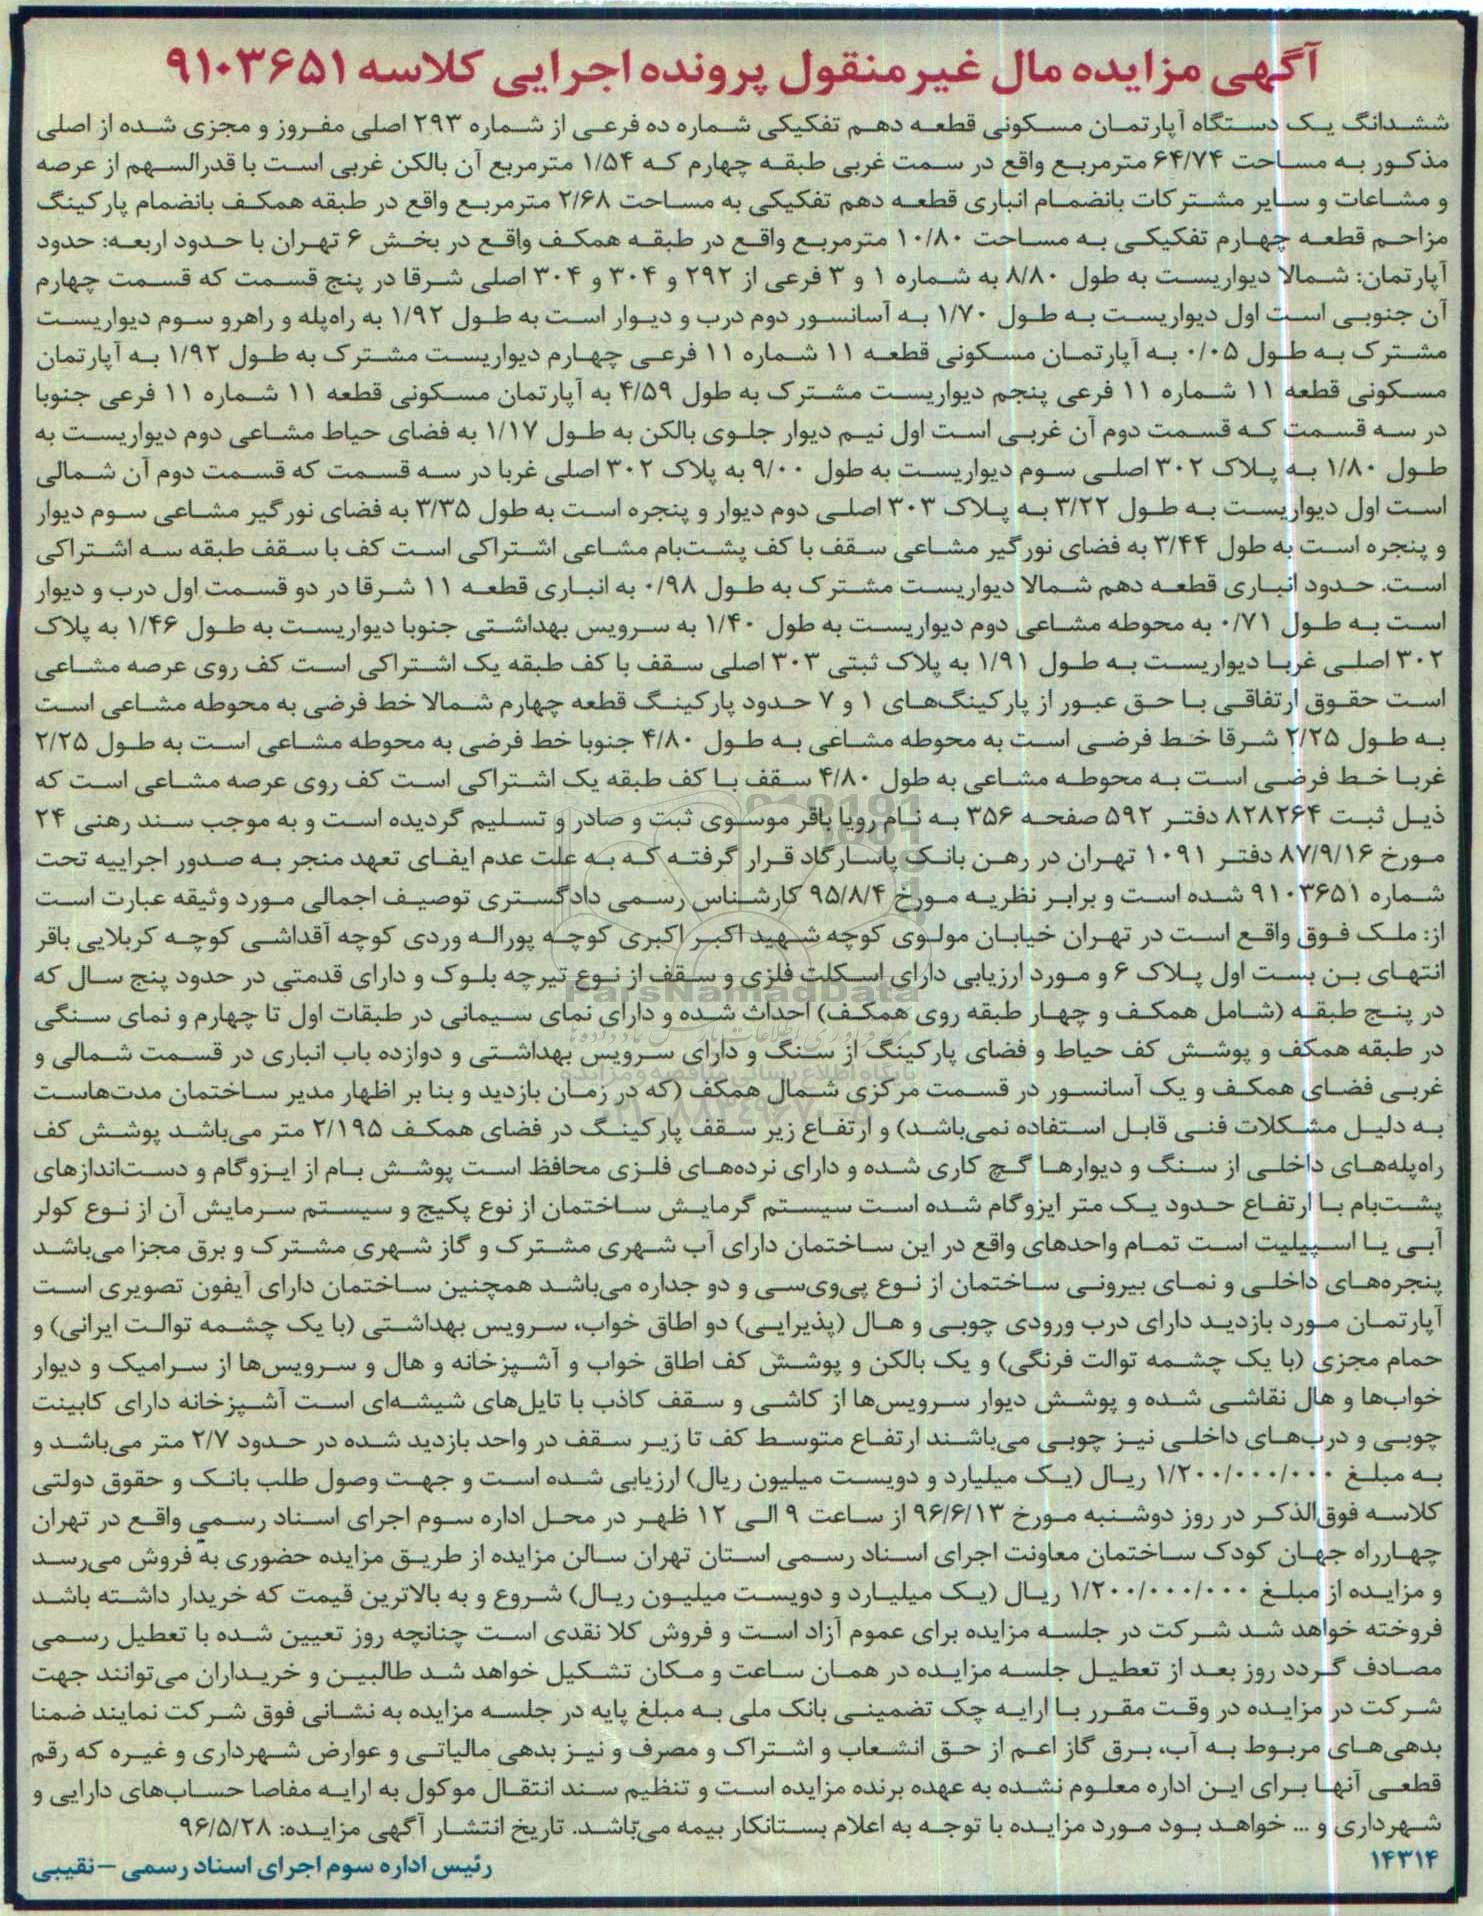 آگهی مزایده مال غیرمنقول پرونده اجرایی کلاسه ۹۱۰۳۶۵۱
ششدانگ یک دستگاه آپارتمان مسکونی قطعه دهم تفکیکی شماره ده فرعی از شماره ۲۹۳ اصلی مفروز و مجزی شده از اصلی
مذکور به مساحت ۶۴/۷۴ مترمربع واقع در سمت غربی طبقه چهارم که ۱/۵۴ مترمربع آن بالکن غربی است با قدرالسهم از عرصه
و مشاعات و سایر مشترکات بانضمام انباری قطعه دهم تفکیکی به مساحت ۲/۶۸ مترمربع واقع در طبقه همکف بانضمام پارکینگ
مزاحم قطعه چهارم تفکیکی به مساحت ۱۰/۸۰ مترمربع واقع در طبقه همکف واقع در بخش ۶ تهران با حدود اربعه: حدود
آپارتمان: شمالا دیواریست به طول ۸/۸۰ به شماره ۱ و ۳ فرعی از ۲۹۲ و ۳۰۴ و ۳۰۴ اصلی شرقا در پنج قسمت که قسمت چهارم
آن جنوبی است اول دیواریست به طول ۱/۷۰ به آسانسور دوم درب و دیوار است به طول ۱/۹۲ به راه‌پله و راهرو سوم دیواریست
مشترک به طول ۰/۰۵ به آپارتمان مسکونی قطعه ۱۱ شماره ۱۱ فرعی چهارم دیواریست مشترک به طول ۱/۹۲ به آپارتمان
مسکونی قطعه ۱۱ شماره ۱۱ فرعی پنجم دیواریست مشترک به طول ۴/۵۹ به آپارتمان مسکونی قطعه ۱۱ شماره ۱۱ فرعی جنوبا
در سه قسمت که قسمت دوم آن غربی است اول نیم دیوار جلوی بالکن به طول ۱/۱۷ به فضای حیاط مشاعی دوم دیواریست به
طول ۱/۸۰ به پلاک ۳۰۲ اصلی سوم دیواریست به طول ۹/۰۰ به پلاک ۳۰۲ اصلی غربا در سه قسمت که قسمت دوم آن شمالی
است اول دیواریست به طول ۳/۲۲ به پلاک ۳۰۳ اصلی دوم دیوار و پنجره است به طول ۳/۳۵ به فضای نورگیر مشاعی سوم دیوار
و پنجره است به طول ۳/۴۴ به فضای نورگیر مشاعی سقف با کف پشت‌بام مشاعی اشتراکی است کف با سقف طبقه سه اشتراکی
است. حدود انباری قطعه دهم شمالا دیواریست مشترک به طول ۰/۹۸ به انباری قطعه ۱۱ شرقا در دو قسمت اول درب و دیوار
است به طول ۰/۷۱ به محوطه مشاعی دوم دیواریست به طول ۱/۴۰ به سرویس بهداشتی جنوبا دیواریست به طول ۱/۴۶ به پلاک
۳۰۲ اصلی غربا دیواریست به طول ۱/۹۱ به پلاک ثبتی ۳۰۳ اصلی سقف با کف طبقه یک اشتراکی است کف روی عرصه مشاعی
است حقوق ارتفاقی با حق عبور از پارکینگ‌های ۱ و ۷ حدود پارکینگ قطعه چهارم شمالا خط فرضی به محوطه مشاعی است
به طول ۲/۲۵ شرقا خط فرضی است به محوطه مشاعی به طول ۴/۸۰ جنوبا خط فرضی به محوطه مشاعی است به طول ۲/۲۵
غربا خط فرضی است به محوطه مشاعی به طول ۴/۸۰ سقف با کف طبقه یک اشتراکی است کف روی عرصه مشاعی است که
ذیل ثبت ۸۲۸۲۶۴ دفتر ۵۹۲ صفحه ۳۵۶ به نام رویا باقر موسوی ثبت و صادر و تسلیم گردیده است و به موجب سند رهنی ۲۴
مورخ ۸۷/۹/۱۶ دفتر ۱۰۹۱ تهران در رهن بانک پاسارگاد قرار گرفته که به علت عدم ایفای تعهد منجر به صدور اجراییه تحت
شماره ۹۱۰۳۶۵۱ شده است و برابر نظریه مورخ ۹۵/۸/۴ کارشناس رسمی دادگستری توصیف اجمالی مورد وثیقه عبارت است
از: ملک فوق واقع است در تهران خیابان مولوی کوچه شهید اکبر اکبری کوچه پوراله وردی کوچه آقداشی کوچه کربلایی باقر
انتهای بن بست اول پلاک ۶ و مورد ارزیابی دارای اسکلت فلزی و سقف از نوع تیرچه بلوک و دارای قدمتی در حدود پنج سال که
در پنج طبقه (شامل همکف و چهار طبقه روی همکف) احداث شده و دارای نمای سیمانی در طبقات اول تا چهارم و نمای سنگی
در طبقه همکف و پوشش کف حیاط و فضای پارکینگ از سنگ و دارای سرویس بهداشتی و دوازده باب انباری در قسمت شمالی و
غربی فضای همکف و یک آسانسور در قسمت مرکزی شمال همکف (که در زمان بازدید و بنا بر اظهار مدیر ساختمان مدت‌هاست
به دلیل مشکلات فنی قابل استفاده نمی‌باشد) و ارتفاع زیر سقف پارکینگ در فضای همکف ۲/۱۹۵ متر می‌باشد پوشش کف
راه‌پله‌های داخلی از سنگ و دیوارها گچ کاری شده و دارای نرده‌های فلزی محافظ است پوشش بام از ایزوگام و دست‌اندازهای
پشت‌بام با ارتفاع حدود یک متر ایزوگام شده است سیستم گرمایش ساختمان از نوع پکیج و سیستم سرمایش آن از نوع کولر
آبی یا اسپیلیت است تمام واحدهای واقع در این ساختمان دارای آب شهری مشترک و گاز شهری مشترک و برق مجزا می‌باشد
پنجره‌های داخلی و نمای بیرونی ساختمان از نوع پی‌وی‌سی و دو جداره می‌باشد همچنین ساختمان دارای آیفون تصویری است
آپارتمان مورد بازدید دارای درب ورودی چوبی و هال (پذیرایی) دو اطاق خواب، سرویس بهداشتی (با یک چشمه توالت ایرانی) و
حمام مجزی (با یک چشمه توالت فرنگی) و یک بالکن و پوشش کف اطاق خواب و آشپزخانه و هال و سرویس‌ها از سرامیک و دیوار
خواب‌ها و هال نقاشی شده و پوشش دیوار سرویس‌ها از کاشی و سقف کاذب با تایل‌های شیشه‌ای است آشپزخانه دارای کابینت
چوبی و درب‌های داخلی نیز چوبی می‌باشند ارتفاع متوسط کف تا زیر سقف در واحد بازدید شده در حدود ۲/۷ متر می‌باشد و
به مبلغ ۱/۲۰۰/۰۰۰/۰۰۰ ریال (یک میلیارد و دویست میلیون ریال) ارزیابی شده است و جهت وصول طلب بانک و حقوق دولتی
کلاسه فوق‌الذکر در روز دوشنبه مورخ ۹۶/۶/۱۳ از ساعت ۹ الی ۱۲ ظهر در محل اداره سوم اجرای اسناد رسمی واقع در تهران
چهارراه جهان کودک ساختمان معاونت اجرای اسناد رسمی استان تهران سالن مزایده از طریق مزایده حضوری به فروش می‌رسد
و مزایده از مبلغ ۱/۲۰۰/۰۰۰/۰۰۰ ریال (یک میلیارد و دویست میلیون ریال) شروع و به بالاترین قیمت که خریدار داشته باشد
فروخته خواهد شد شرکت در جلسه مزایده برای عموم آزاد است و فروش کلا نقدی است چنانچه روز تعیین شده با تعطیل رسمی
مصادف گردد روز بعد از تعطیل جلسه مزایده در همان ساعت و مکان تشکیل خواهد شد طالبین و خریداران می‌توانند جهت
شرکت در مزایده در وقت مقرر با ارایه چک تضمینی بانک ملی به مبلغ پایه در جلسه مزایده به نشانی فوق شرکت نمایند ضمنا
بدهی‌های مربوط به آب، برق گاز اعم از حق انشعاب و اشتراک و مصرف و نیز بدهی مالیاتی و عوارض شهرداری و غیره که رقم
قطعی آنها برای این اداره معلوم نشده به عهده برنده مزایده است و تنظیم سند انتقال موکول به ارایه مفاصا حساب‌های دارایی و
شهرداری و ... خواهد بود مورد مزایده با توجه به اعلام بستانکار بیمه می‌باشد. تاریخ انتشار آگهی مزایده: ۹۶/۵/۲۸
۱۴۳۱۴
رئیس اداره سوم اجرای اسناد رسمی – نقیبی
ParsNamadData
پایگاه اطلاع رسانی مناقصه و مزایده